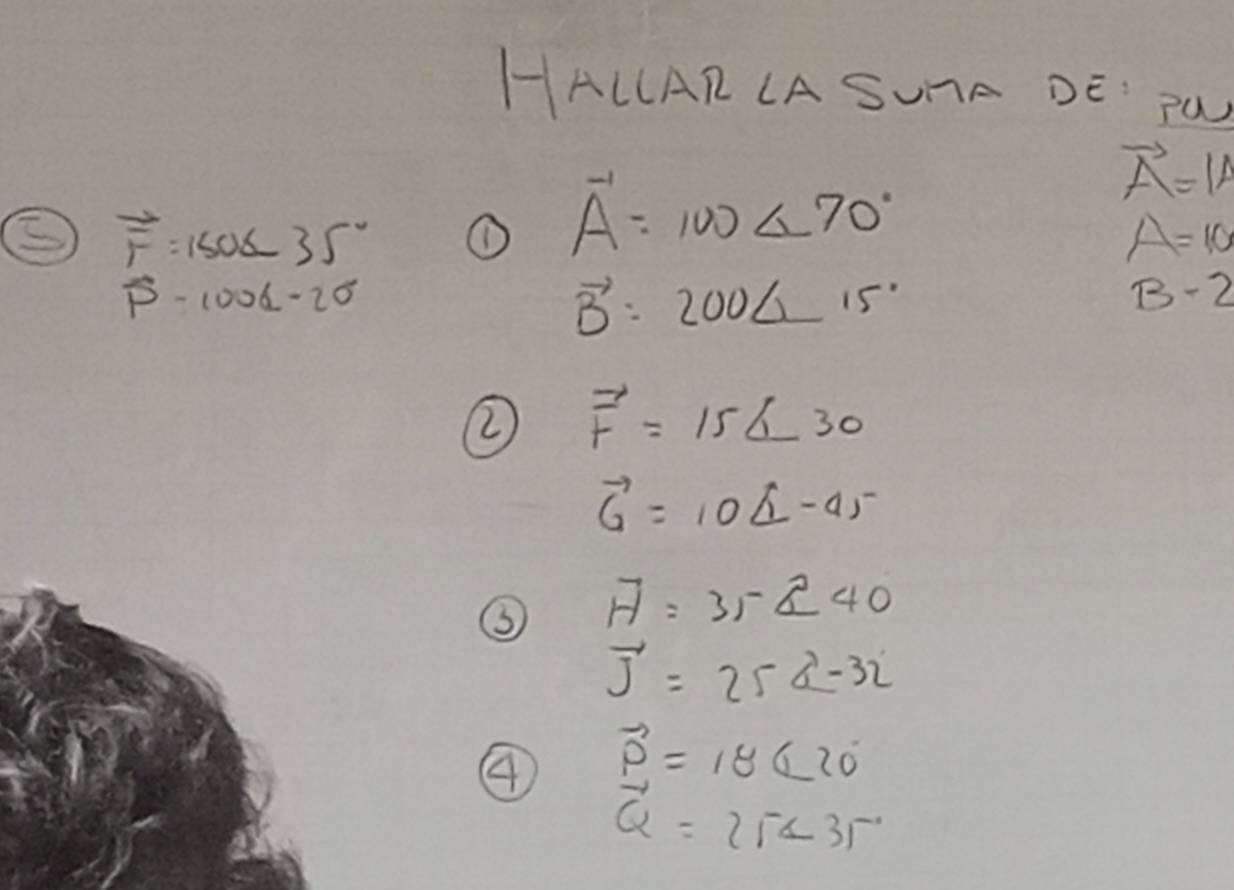 HALLAR LA SUMA DE:
① A = 100∡70°
B = 200∡15°
② F = 15∡30
G = 10∡-45
③ H = 35∡40
J = 25∡-32
④ P = 18∡20
Q = 25∡35°
⑤ F = 150∡35°
P = 100∡-20
A=|A
A=10
B-2